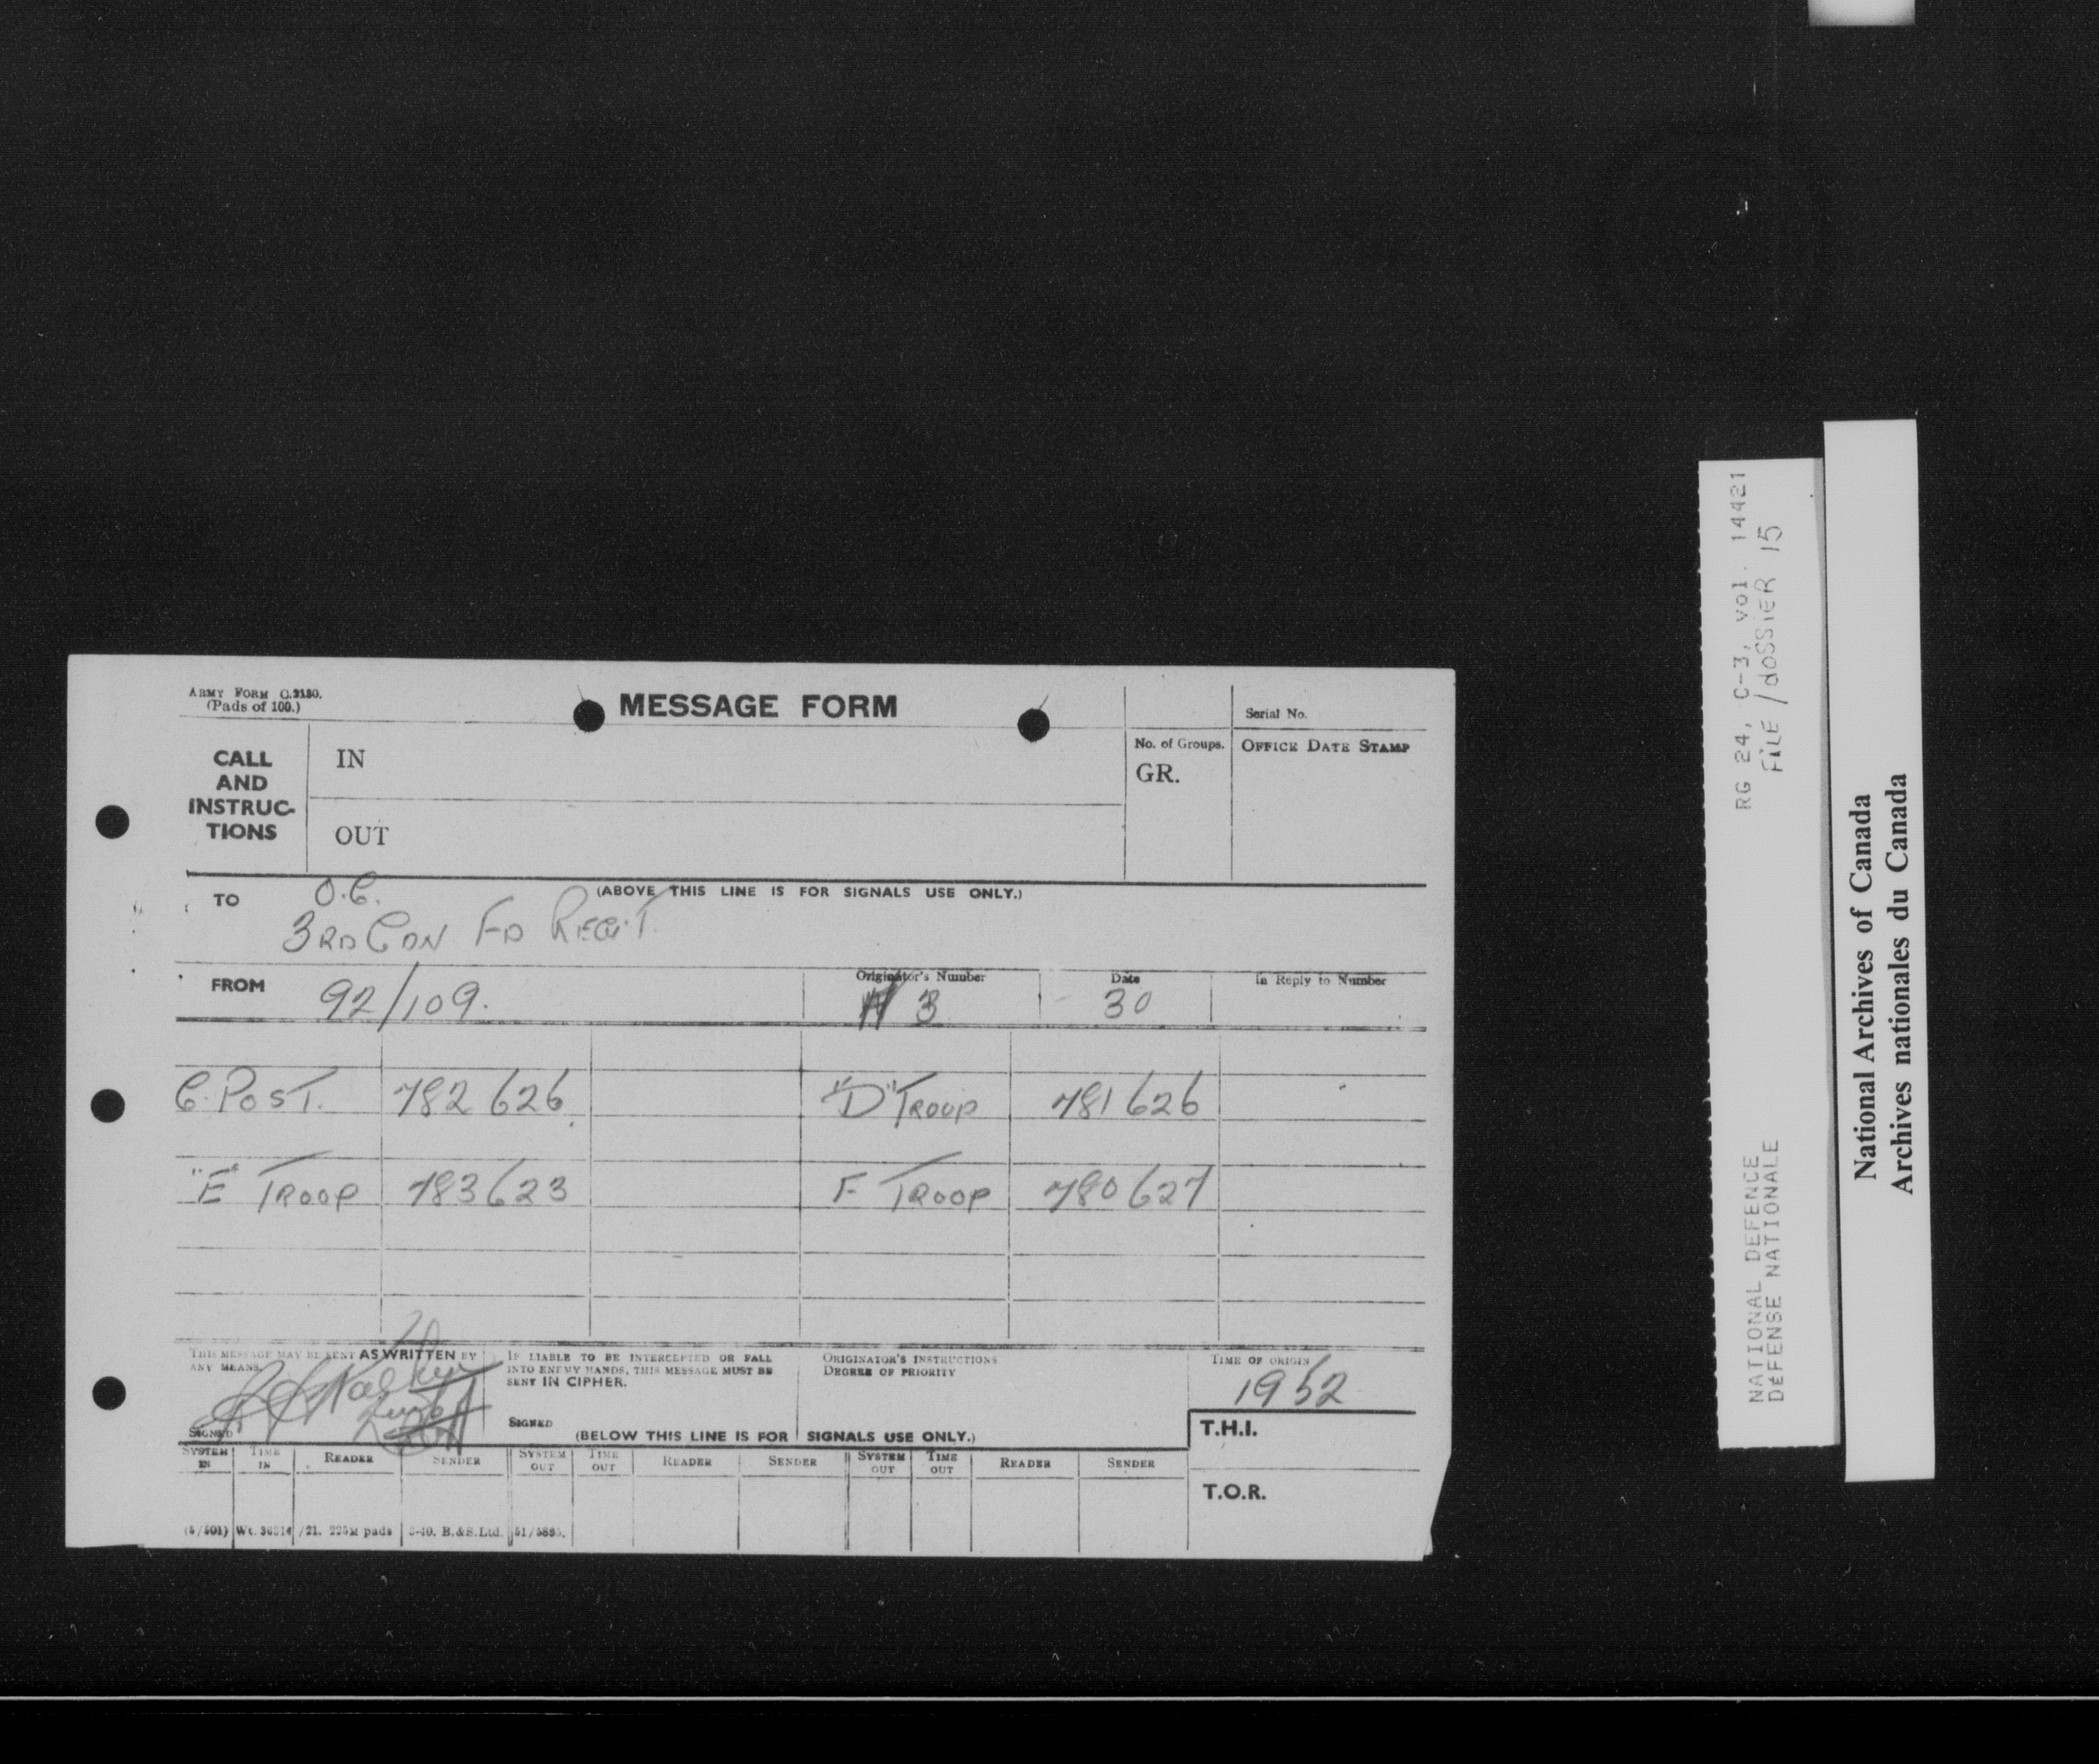 ARMY FORM C.2130.
(Pads of 100.)
MESSAGE FORM
Serial No.
CALL AND INSTRUC-TIONS
IN
OUT
No. of Groups.
GR.
OFFICE DATE STAMP
(ABOVE THIS LINE IS FOR SIGNALS USE ONLY.)
TO O.C.
3RD CDN FD REGT.
FROM 92/109.
Originator's Number
3
Date
30
In Reply to Number
C. POST. 782 626 "D" TROOP 781 626
"E" TROOP 783 623 F TROOP 780 627
THIS MESSAGE MAY BE SENT AS WRITTEN BY
ANY MEANS.
SIGNED
IF LIABLE TO BE INTERCEPTED OR FALL
INTO ENEMY HANDS, THIS MESSAGE MUST BE
SENT IN CIPHER.
SIGNED
ORIGINATOR'S INSTRUCTIONS
DEGREE OF PRIORITY
TIME OF ORIGIN
1952
(BELOW THIS LINE IS FOR SIGNALS USE ONLY.)
T.H.I.
T.O.R.
SYSTEM IN TIME IN READER SENDER SYSTEM OUT TIME OUT READER SENDER SYSTEM OUT TIME OUT READER SENDER
/21. 225M pads B.&S.Ltd.
RG 24, C-3, vol. 14421
FILE/dOSSIER 15
NATIONAL DEFENCE
DÉFENSE NATIONALE
National Archives of Canada
Archives nationales du Canada